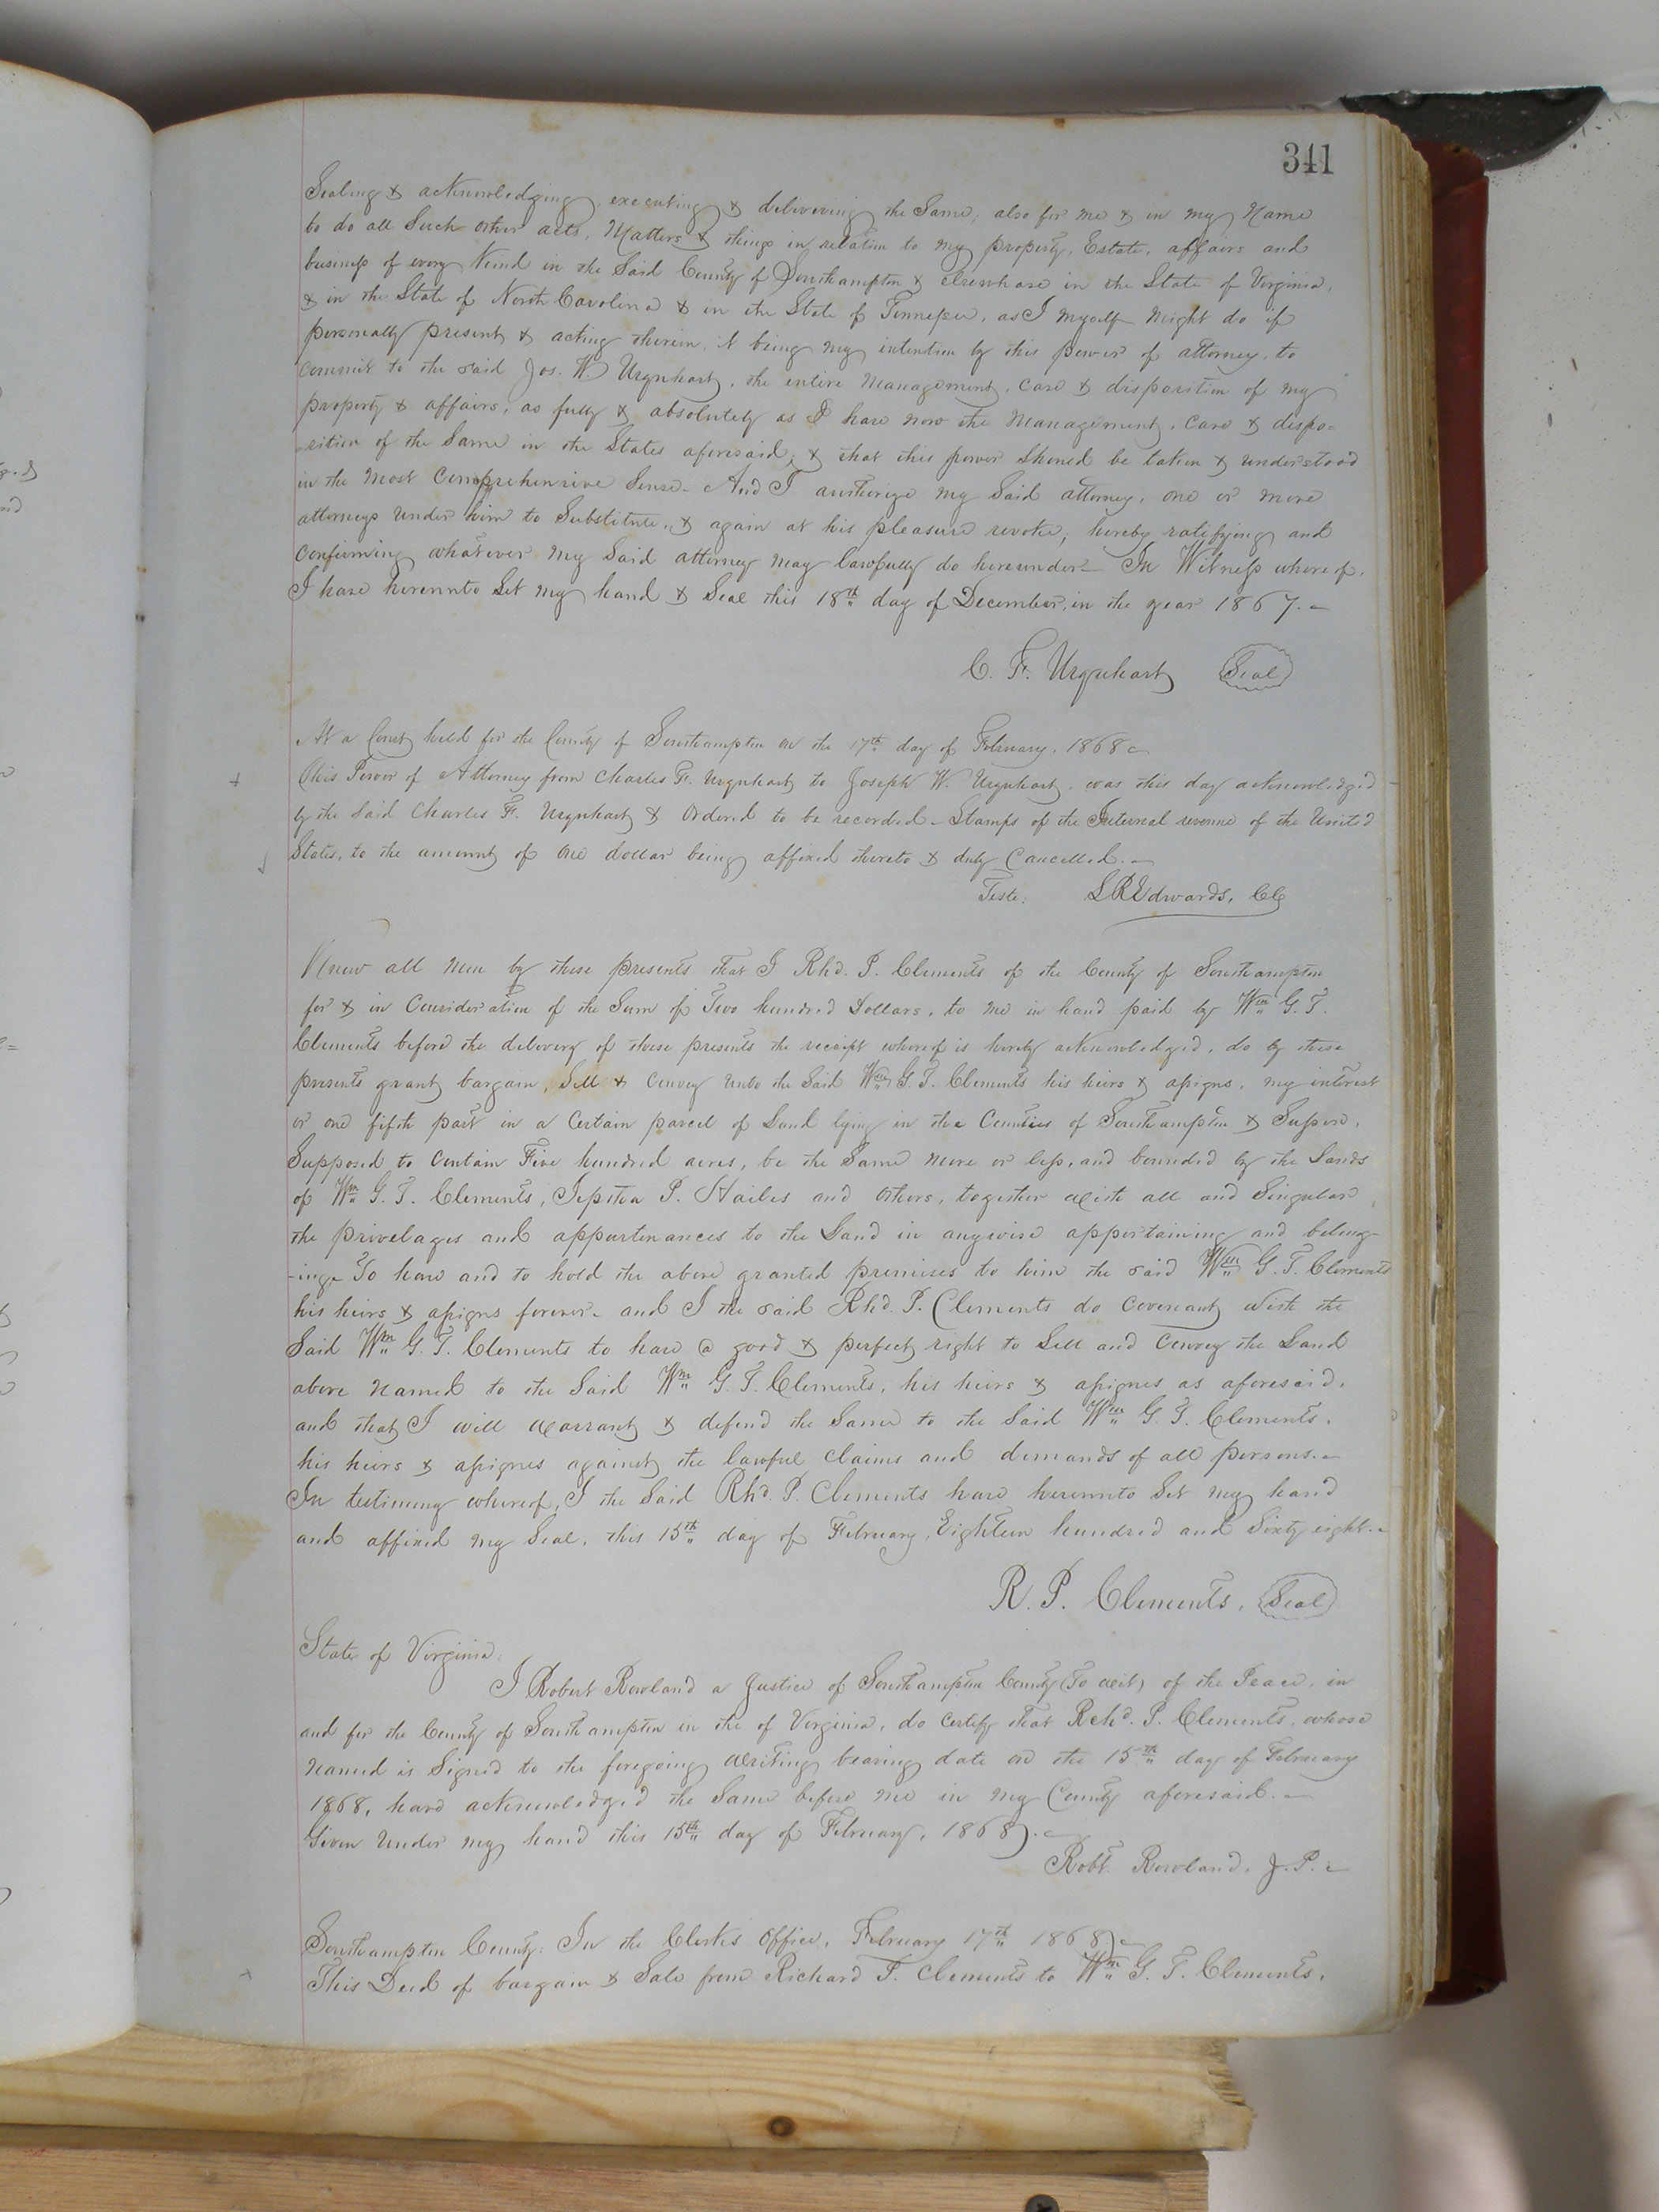 341
Sealing & acknowledging, executing & delivering the Same; also for me & in my Name
to do all Such other acts, Matters & things in relation to my property, Estate, affairs and
business of every Kind in the Said County of Southampton & elsewhere in the State of Virginia,
& in the State of North Carolina & in the State of Tennessee, as I myself might do if
personally present & acting therein, it being my intention by this power of attorney, to
commit to the said Jos. W. Urquhart, the entire Management, care & disposition of my
property & affairs, as fully & absolutely as I have now the Management, care & dispo=
-sition of the Same in the States aforesaid; & that this power should be taken & understood
in the most Comprehensive Sense - And I authorize my Said attorney, one or more
attorneys under him to Substitute, & again at his pleasure revoke, hereby ratifying and
confirming whatever my Said attorney may lawfully do hereunder - In Witness whereof,
I have hereunto Set my hand & Seal this 18th day of December, in the year 1867. -
C. F. Urquhart Seal
At a Court held for the County of Southampton on the 17th day of February, 1868 -
This Power of Attorney from Charles F. Urquhart to Joseph W. Urquhart, was this day acknowledged
by the Said Charles F. Urquhart & Ordered to be recorded - Stamps of the Internal revenue of the United
States, to the amount of one dollar being affixed thereto & duly Cancelled. -
Teste: L R Edwards, CC
Know all Men by these presents that I Rhd. P. Clements of the County of Southampton
for & in Consideration of the Sum of Two hundred Dollars, to me in hand paid by Wm G. T.
Clements before the delivery of these presents the receipt whereof is hereby acknowledged, do by these
presents grant, bargain, Sell & Convey unto the Said Wm G. T. Clements his heirs & assigns, my interest
or one fifth part in a Certain parcel of Land lying in the Counties of Southampton & Sussex,
Supposed to Contain Five hundred acres, be the Same more or less, and bounded by the Lands
of Wm G. T. Clements, Jeptha P. Hailes and others, together with all and Singular
the privelages and appurtenances to the Land in anywise appertaining and belong-
-ing - To have and to hold the above granted premises to him the said Wm G. T. Clements
his heirs & assigns forever - and I the said Rhd. P. Clements do Covenant with the
Said Wm G. T. Clements to have a good & perfect right to Sell and Convey the Land
above Named to the Said Wm G. T. Clements, his heirs & assignes as aforesaid,
and that I will warrant & defend the Same to the Said Wm G. T. Clements,
his heirs & assignes against the lawful claims and demands of all persons. -
In testimony whereof, I the Said Rhd. P. Clements have hereunto Set my hand
and affixed my Seal, this 15th day of February, Eighteen hundred and Sixty eight. -
R. P. Clements, Seal
State of Virginia:
I Robert Rowland a Justice of Southampton County (To wit) of the Peace, in
and for the County of Southampton in the of Virginia, do Certify that Rchd. P. Clements, whose
Named is Signed to the foregoing writing bearing date on the 15th day of February
1868, have acknowledged the Same before me in my County aforesaid. -
Given under my hand this 15th day of February, 1868). -
Robt Rowland, J. P. -
Southampton County: In the Clerks Office, February 17th 1868) -
This Deed of bargain & Sale from Richard P. Clements to Wm G. T. Clements,